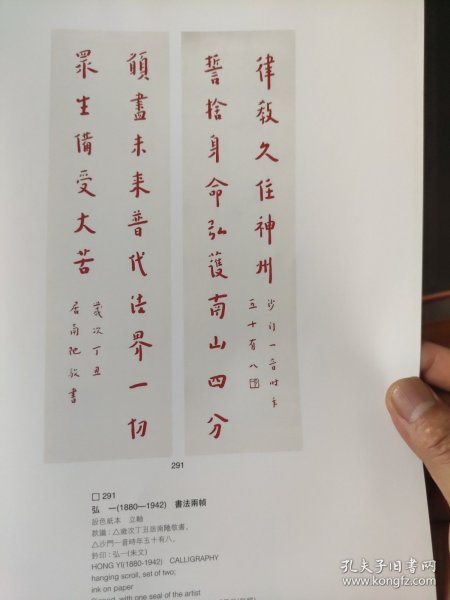 願盡未来普代法界一切
眾生備受大苦
歲次丁丑
居南陁敬書
誓捨身命弘護南山四分
律教久住神州
沙門一音時年
五十有八
291
□291
弘 一(1880—1942) 書法兩幀
設色紙本 立軸
款識：△歲次丁丑居南陁敬書。
△沙門一音時年五十有八。
鈐印：弘一(朱文)
HONG YI(1880-1942) CALLIGRAPHY
hanging scroll, set of two;
ink on paper
Signed, with one seal of the artist
孔夫子旧书网